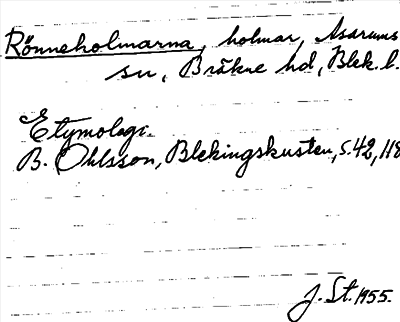 Rönneholmarna, holmar, Asarums
sn, Bräkne hd, Blek. l.
Etymologi.
B. Ohlsson, Blekingskusten, s. 42, 118
J. St. 1955.